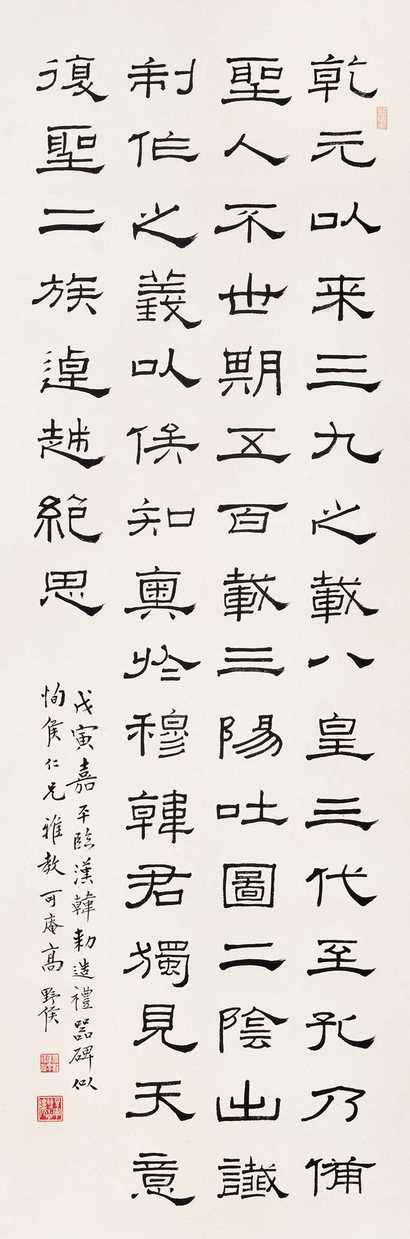 乾元以来三九之載八皇三代至孔乃備
聖人不世期五百載三陽吐圖二陰出讖
制作之義以俟知奧於穆韓君獨見天意
復聖二族逴越絕思
戊寅嘉平臨漢韓勑造禮器碑似
恂侯仁兄雅教 可庵高野侯